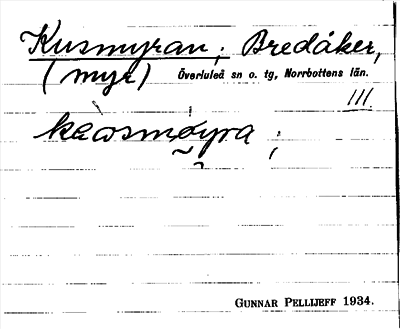 Kusmyran; Bredåker,
(myr) Överluleå sn o. tg, Norrbottens län.
III
Gunnar Pellijeff 1934.